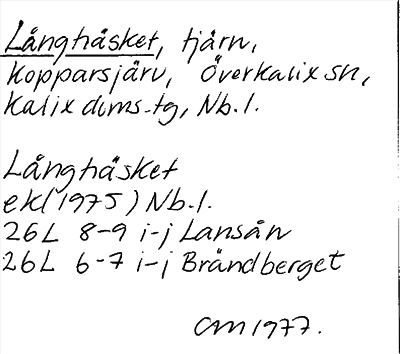 Långhåsket, tjärn,
Kopparsjärv, Överkalix sn,
Kalix doms.tg, Nb.l.
Långhåsket
ek(1975) Nb.l.
26L 8-9 i-j Lansån
26L 6-7 i-j Brändberget
CM 1977.